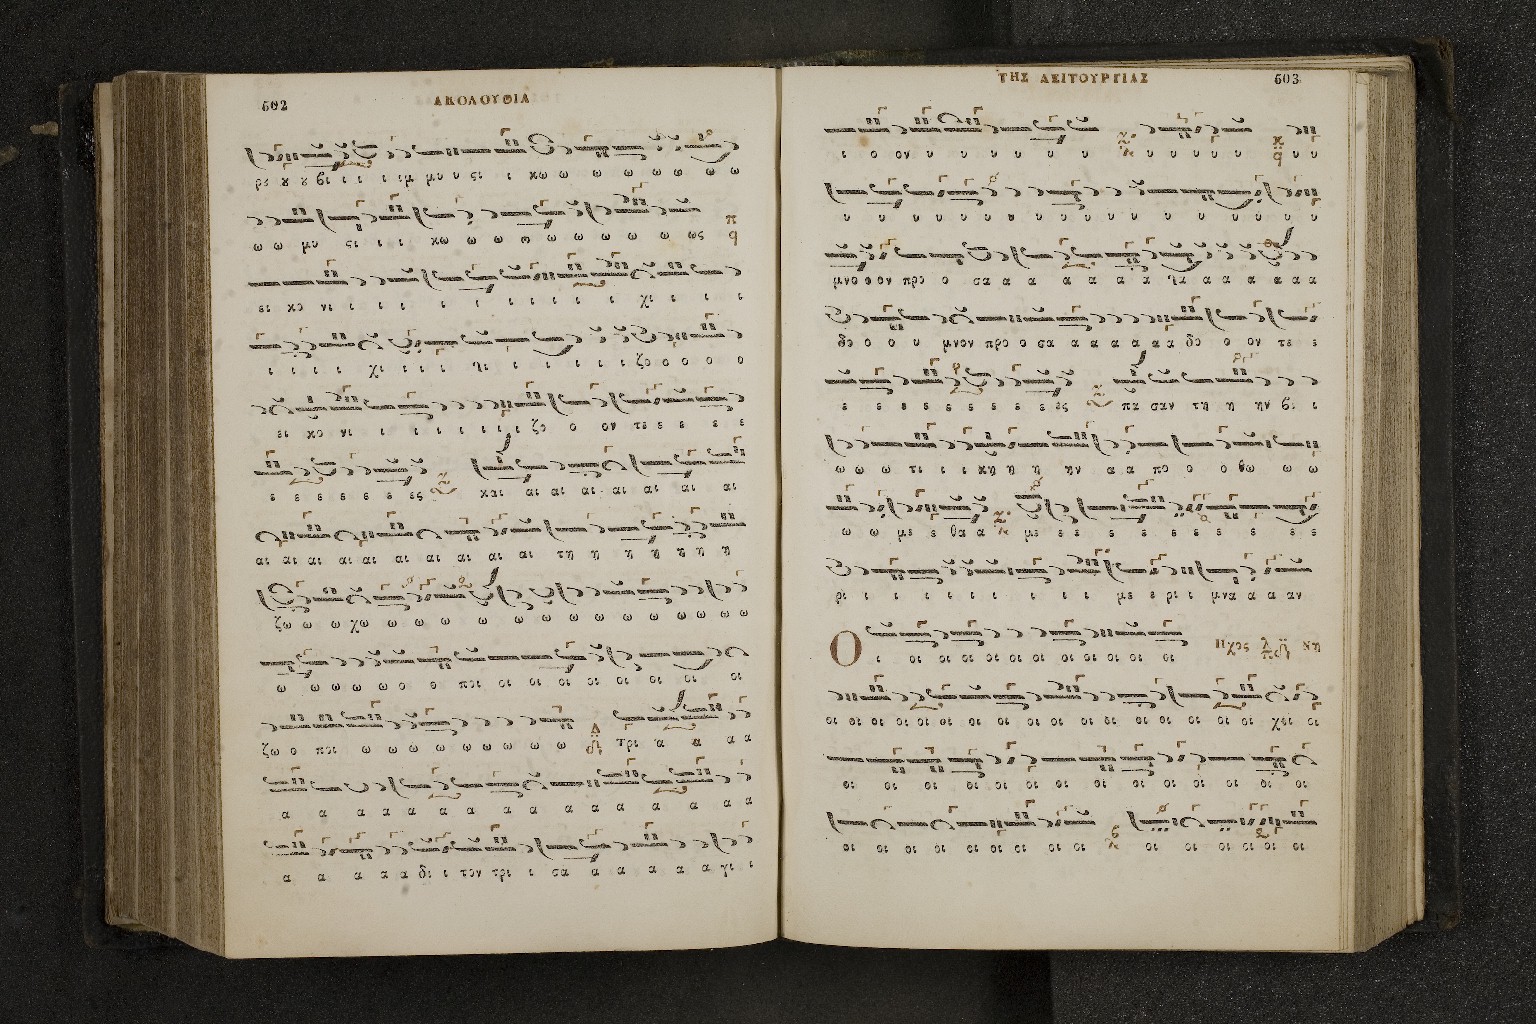 502
ΑΚΟΛΟΥΘΙΑ
ρ ȣ ȣ βι ι ι ι ιμ μυ υ ςι ι κω ω ω ω ω ω ω ω
ω ω μυ ςι ι ι κω ω ω ω ω ω ω ω ω ως
ει κο νι ι ι ι ι ι ι ι ι ι ι χι ι ι ι
ι ι ι ι χι ι ι ι ηι ι ι ι ι ι ι ζο ο ο ο ο
ει κο νι ι ι ι ι ι ι ι ζο ο ον τε ε ε ε ε
ε ε ε ε ε ε ες και αι αι αι αι αι αι αι
αι αι αι αι αι αι αι αι αι αι τη η η η η η η
ζω ω ω χω ω ω ω ω ω ω ω ω ω ω ω ω
ω ω ω ω ω ο ο ποι οι οι οι οι οι οι οι οι
ζω ο ποι ω ω ω ω ω ω ω ω ω τρι α α α α
α α α α α α α α α α α α α
α α α α α δι ι τον τρι ι σα α α α α α γι ι
ΤΗΣ ΛΕΙΤΟΥΡΓΙΑΣ
503
ι ο ον υ υ υ υ υ υ υ υ υ υ υ υ υ
υ υ υ υ υ υ υ υ υ υ υ υ υ υ υ υ υ υ
μνο ο ον προ ο σα α α α α α α ηα α α α α α
δο ο ο υ μνον προ ο σα α α α α α α δο ο ον τε ε
ε ε ε ε ε ε ε ε ες πα σαν τη η ην βι ι
ω ω ω τι ι ι κη η η ην α α πο ο ο θω ω ω
ω ω με ε θα α με ε ε ε ε ε ε ε ε ε ε
ρι ι ι ι ι ι ι ι ι ι με ε ρι ι μνα α α αν
Ο ι οι οι οι οι οι οι οι οι οι οι οι οι Ηχος Νη
οι οι οι οι οι οι οι οι οι οι οι οι οι οι οι οι οι χει οι
οι οι οι οι οι οι οι οι οι οι οι οι οι
οι οι οι οι οι οι οι οι οι οι οι οι οι οι οι